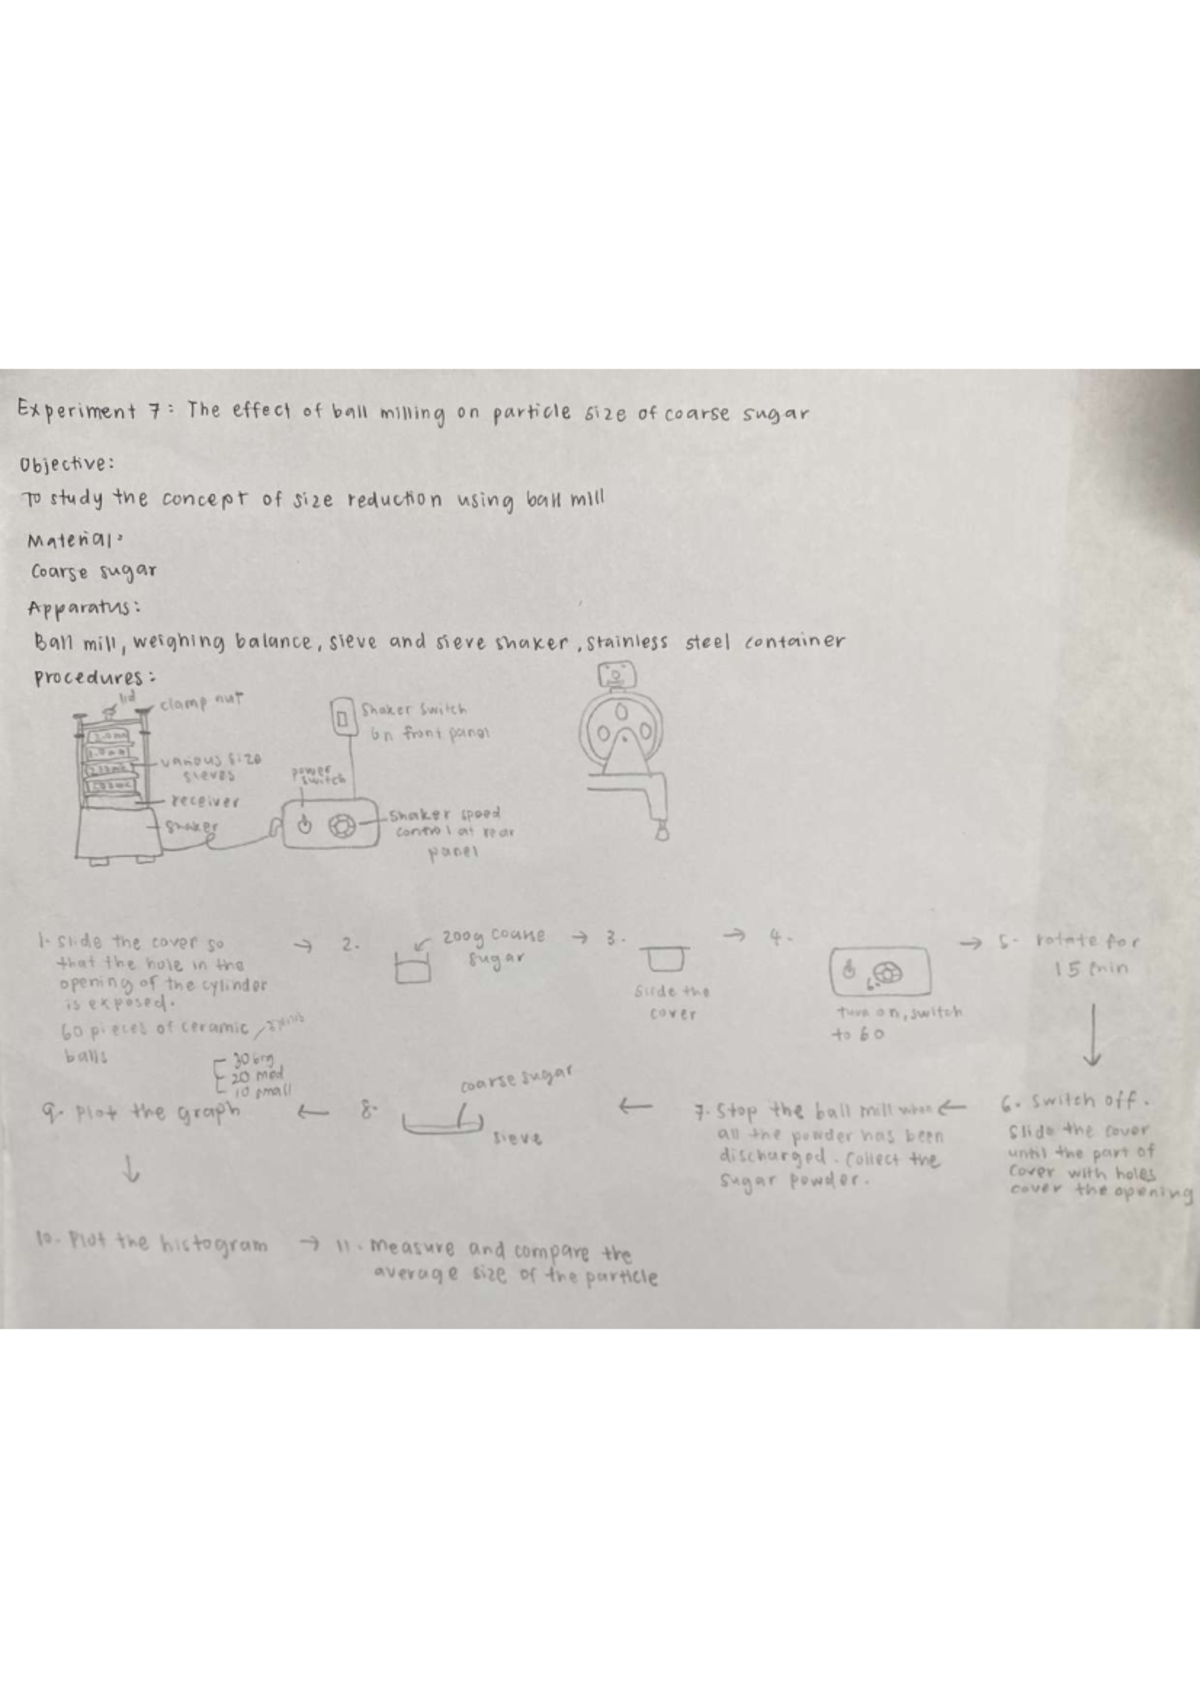 Experiment 7: The effect of ball milling on particle size of coarse sugar
Objective:
To study the concept of size reduction using ball mill
Material:
Coarse sugar
Apparatus:
Ball mill, weighing balance, sieve and sieve shaker, stainless steel container
Procedures:
lid
clamp nut
various size
sieves
receiver
shaker
Shaker switch
on front panel
power
switch
shaker speed
control at rear
panel
1. Slide the cover so
that the hole in the
opening of the cylinder
is exposed.
60 pieces of ceramic
balls
30 big
20 med
10 small
→ 2.
200g coarse
sugar
→ 3.
Slide the
cover
→ 4.
6.
turn on, switch
to 60
→ 5. rotate for
15 min
6. Switch off.
Slide the cover
until the part of
cover with holes
cover the opening
7. Stop the ball mill when ←
all the powder has been
discharged. Collect the
sugar powder.
←
8.
coarse sugar
sieve
9. Plot the graph ←
10. Plot the histogram
→ 11. Measure and compare the
average size of the particle